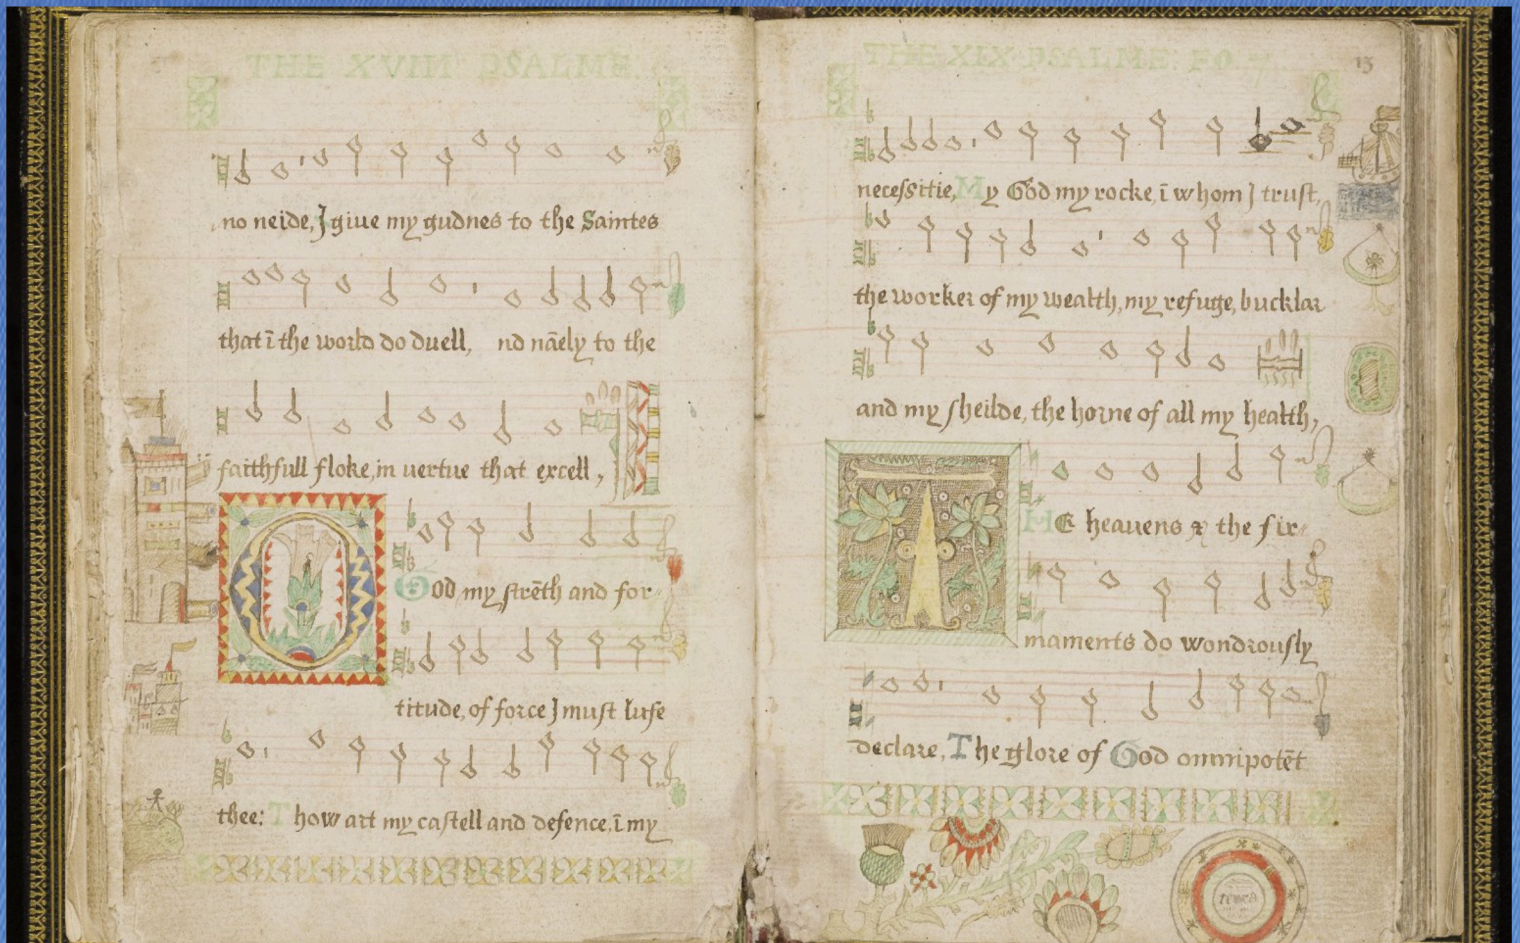 THE XVIII PSALME
no neide, J giue my gudnes to the Saintes
that ī the world do duell, nd nāely to the
faithfull floke, in uertue that excell,
O God my strēth and for-
titude, of force J must lufe
thee: T how art my castell and defence, ī my
THE XIX PSALME: FO
13
necessitie, My God my rocke, ī whom J trust,
the worker of my wealth, my refuge, bucklar
and my sheilde, the horne of all my health,
T HE heauens & the fir-
maments do wondrously
declare, The glore of God omnipotēt
terra